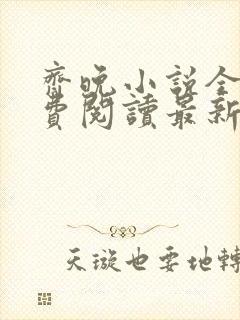 齊晚小說全
費閱讀最新
天璇也要地轉